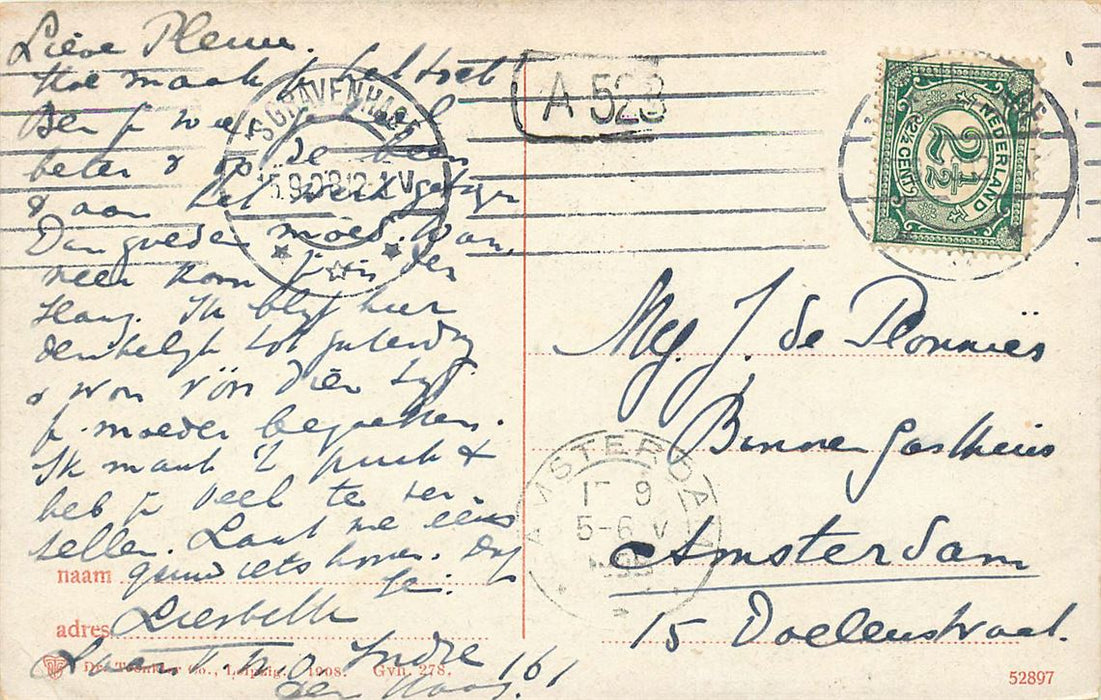 Lieve Plenn.
Hoe maak je het toch
Ben je weer
beter & op de been
& aan het werk getogen
Dan goeden moed. Wan
neer kom je in den
Haag. Ik blijf hier
denkelijk tot Zaterdag
& wou vóór dien tijd
je moeder bezoeken.
Ik maak 't puik &
heb je veel te ver-
tellen. Laat me eens
gauw iets hooren. Dag
Je.
Liesbeth
Laan
den Haag 161
naam
adres
Dr. Trenkler Co., Leipzig. 1908. Gvh. 278.
52897
'S GRAVENHAGE
15.9.08 12-1 V
A 523
NEDERLAND
2½
2½ CENT
Mej. J. de Ploennies
Binnen Gasthuis
Amsterdam
15 Doelenstraat.
AMSTERDAM
15 9
5-6 V